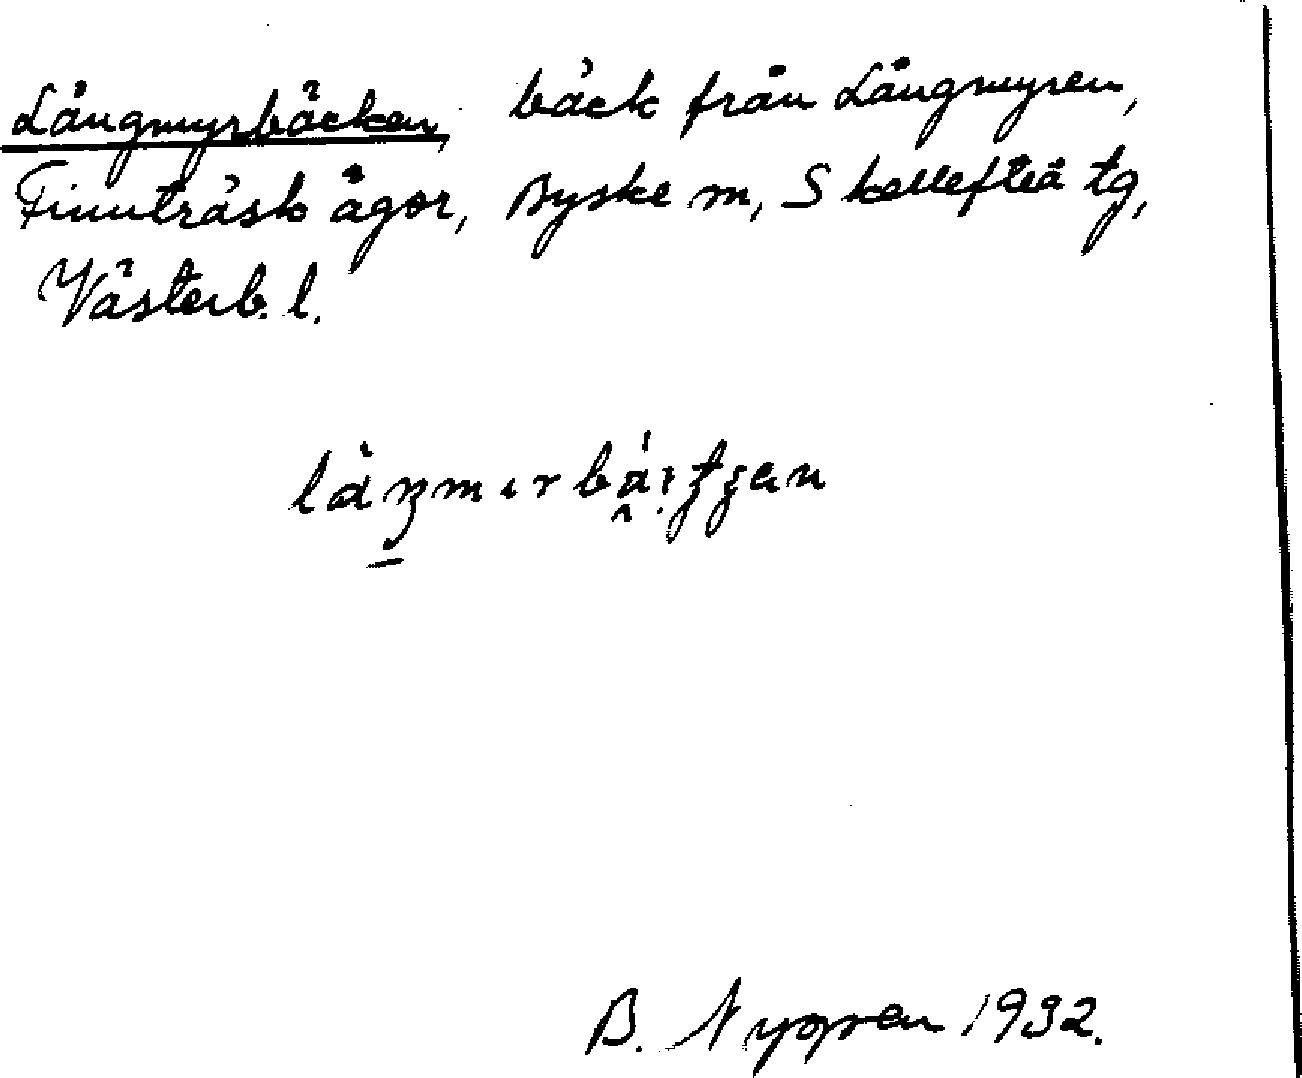 Långmyrbäcken, bäck från Långmyren,
Finnträsk ägor, Byske sn, Skellefteå tg,
Västerb. l.
B. Nygren 1932.